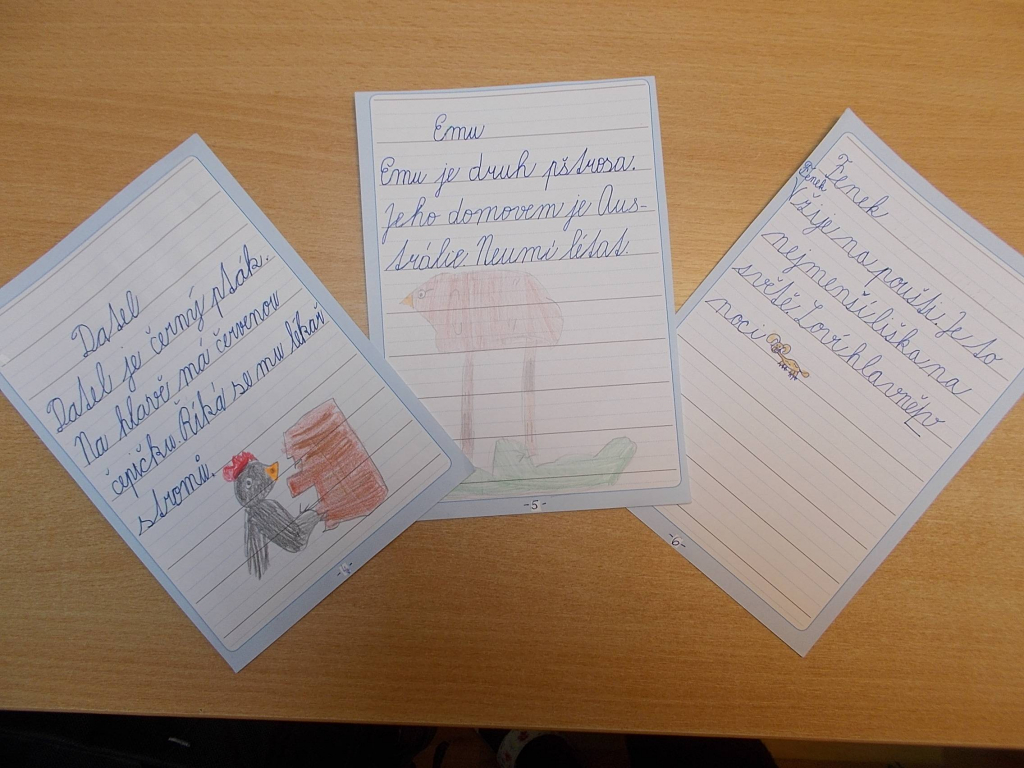 Datel
Datel je černý pták.
Na hlavě má červenou
čepičku. Říká se mu lékař
stromů.
-4-
Emu
Emu je druh pštrosa.
Jeho domovem je Aus-
trálie Neumí létat.
-5-
Fenek
Fenek
Vžije na poušti. Je to
nejmenší liška na
světě. Loví hlavně v
noci
-6-